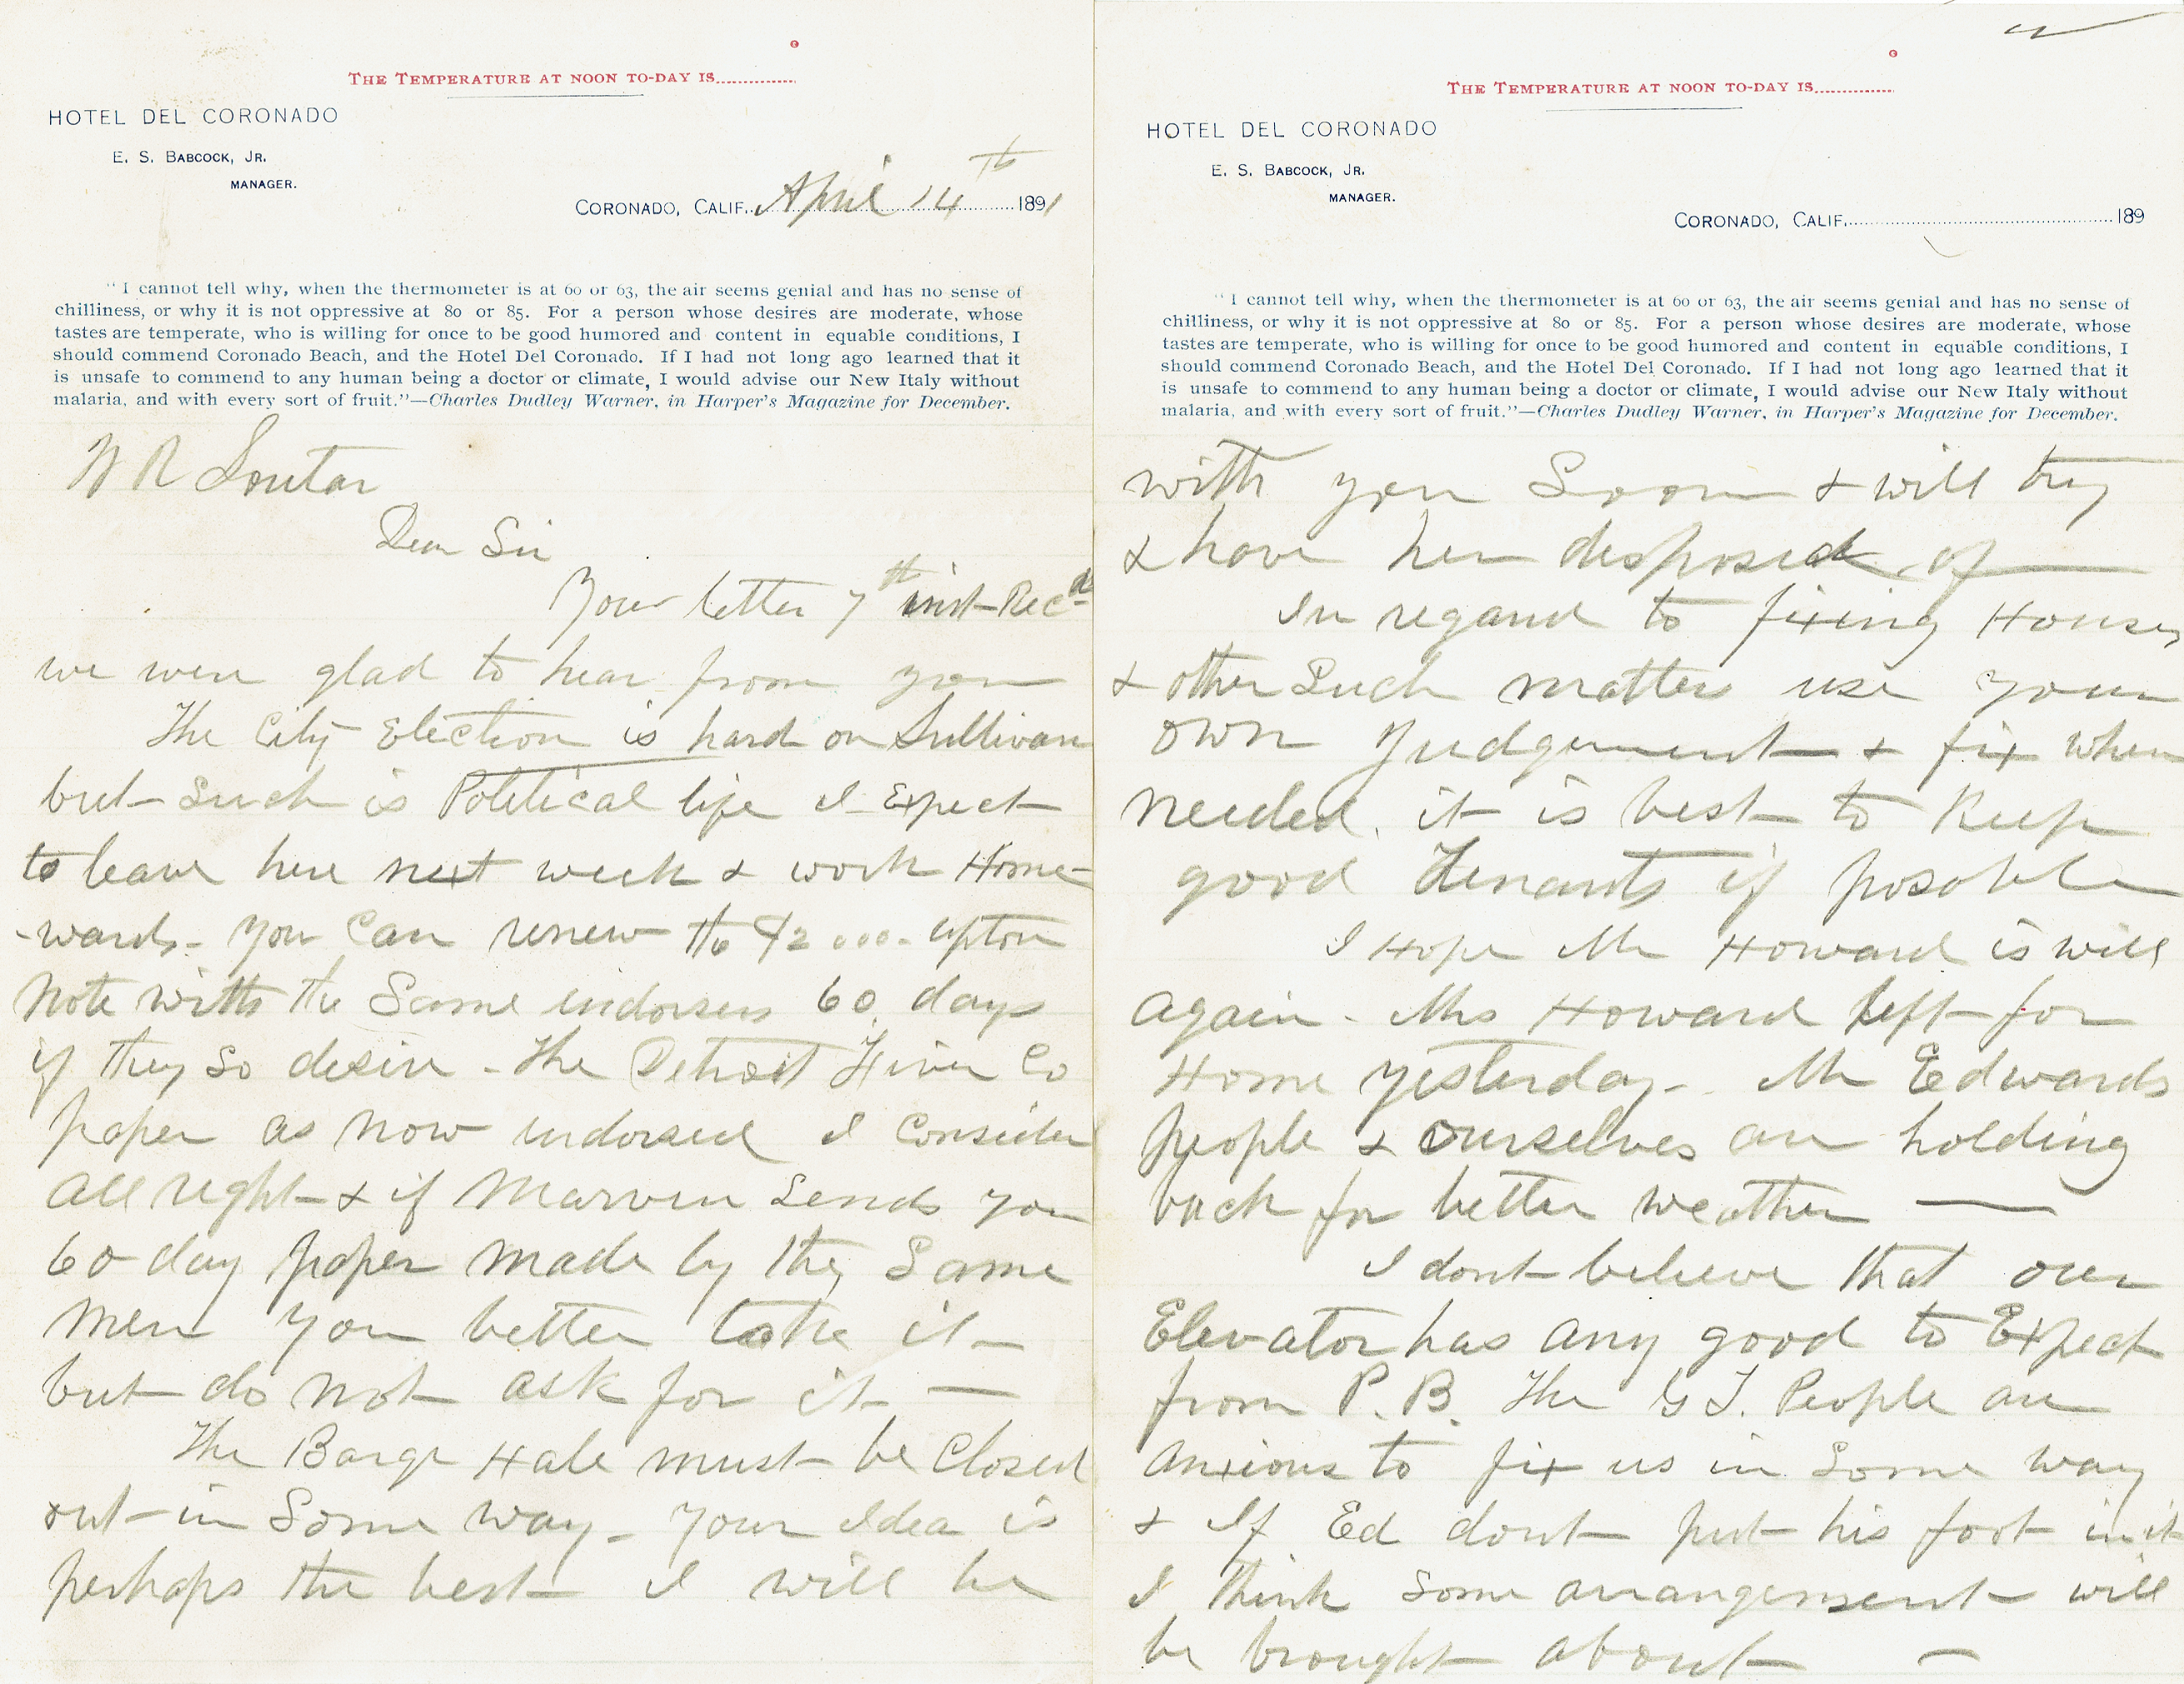 THE TEMPERATURE AT NOON TO-DAY IS..............°
HOTEL DEL CORONADO
E. S. BABCOCK, JR.
MANAGER.
CORONADO, CALIF. April 14th 1891
"I cannot tell why, when the thermometer is at 60 or 63, the air seems genial and has no sense of
chilliness, or why it is not oppressive at 80 or 85. For a person whose desires are moderate, whose
tastes are temperate, who is willing for once to be good humored and content in equable conditions, I
should commend Coronado Beach, and the Hotel Del Coronado. If I had not long ago learned that it
is unsafe to commend to any human being a doctor or climate, I would advise our New Italy without
malaria, and with every sort of fruit."—Charles Dudley Warner, in Harper's Magazine for December.
W R Soutar
Dear Sir
Your letter 7th inst Recd
we were glad to hear from you
The City Election is hard on Sullivan
but Such is Political life I Expect
to leave here next week & work Home-
-wards. You Can renew the $2000. Upton
Note with the Same endorsers 60 days
if they So desire - The Detroit River Co
paper as Now endorsed I Consider
All right & if Marvin Sends you
60 day paper made by they Same
Men you better take it -
but do Not ask for it —
The Barge Hale must be Closed
out in Some way - Your Idea is
perhaps the best I will be
THE TEMPERATURE AT NOON TO-DAY IS..............°
HOTEL DEL CORONADO
E. S. BABCOCK, JR.
MANAGER.
CORONADO, CALIF. 189
"I cannot tell why, when the thermometer is at 60 or 63, the air seems genial and has no sense of
chilliness, or why it is not oppressive at 80 or 85. For a person whose desires are moderate, whose
tastes are temperate, who is willing for once to be good humored and content in equable conditions, I
should commend Coronado Beach, and the Hotel Del Coronado. If I had not long ago learned that it
is unsafe to commend to any human being a doctor or climate, I would advise our New Italy without
malaria, and with every sort of fruit."—Charles Dudley Warner, in Harper's Magazine for December.
with you Soon & will try
& have her disposed of —
In regard to fixing Houses
& other Such matters use your
own Judgement & fix when
needed. it is best to Keep
good Tenants if posable
I Hope Mr Howard is well
Again - Mrs Howard left for
Home yesterday - Mr Edwards
people & Ourselves are holding
back for better weather —
I dont believe that our
Elevator has any good to Expect
from P. B. The G T. People are
Anxious to fix us in Some way
& If Ed dont put his foot in it
I think Some arrangement will
be brought about —